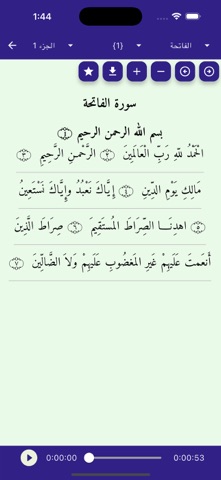 1:44
الجزء 1 {1} الفاتحة
سورة الفاتحة
بسم الله الرحمن الرحيم ﴿١﴾
الْحَمْدُ للهِ رَبِّ الْعَالَمِينَ ﴿٢﴾ الرَّحْمنِ الرَّحِيمِ ﴿٣﴾
مَالِكِ يَوْمِ الدِّينِ ﴿٤﴾ إِيَّاكَ نَعْبُدُ وإِيَّاكَ نَسْتَعِينُ
﴿٥﴾ اهدِنَــــا الصِّرَاطَ المُستَقِيمَ ﴿٦﴾ صِرَاطَ الَّذِينَ
أَنعَمتَ عَلَيهِمْ غَيرِ المَغضُوبِ عَلَيهِمْ وَلاَ الضَّالِّينَ ﴿٧﴾
0:00:00 0:00:53